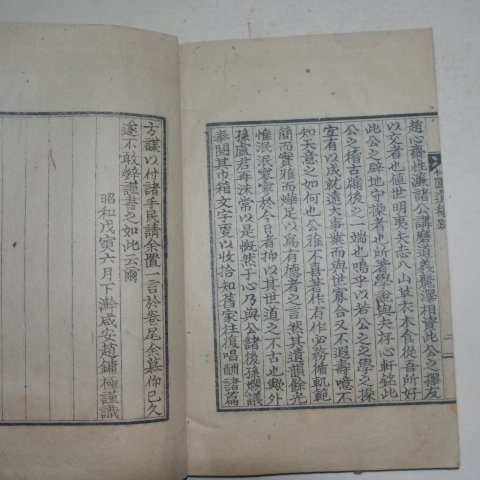 趙心齋性濂諸公講磨道義麗澤相資此公之擇友
以交者也値世明夷矢志入山草衣木食從吾所好
此公之辟地守操者也所著學說與夫存心軒銘此
公之稽古牖後之一端也嗚乎以若公之學之操
宜有以成就遠大事業而與世寡合又不遐壽噫不
知天意之如何也公雅不喜著作有作必務循軌範
簡而實雅而雖足以爲有德者之言然其遺韻餘光
惟泯泯寥寥於今日者抑以其世道之不古也歟外
孫盧君再洙常以是慨然于心乃與公諸後孫爛議
奉閱其巾箱文字更以收拾知舊家往復唱酬諸篇
方謀以付諸手民請余置一言於卷尾余慕仰已久
遂不敢辭謹書之如此云爾
昭和戊寅六月下澣咸安趙鏞極謹識